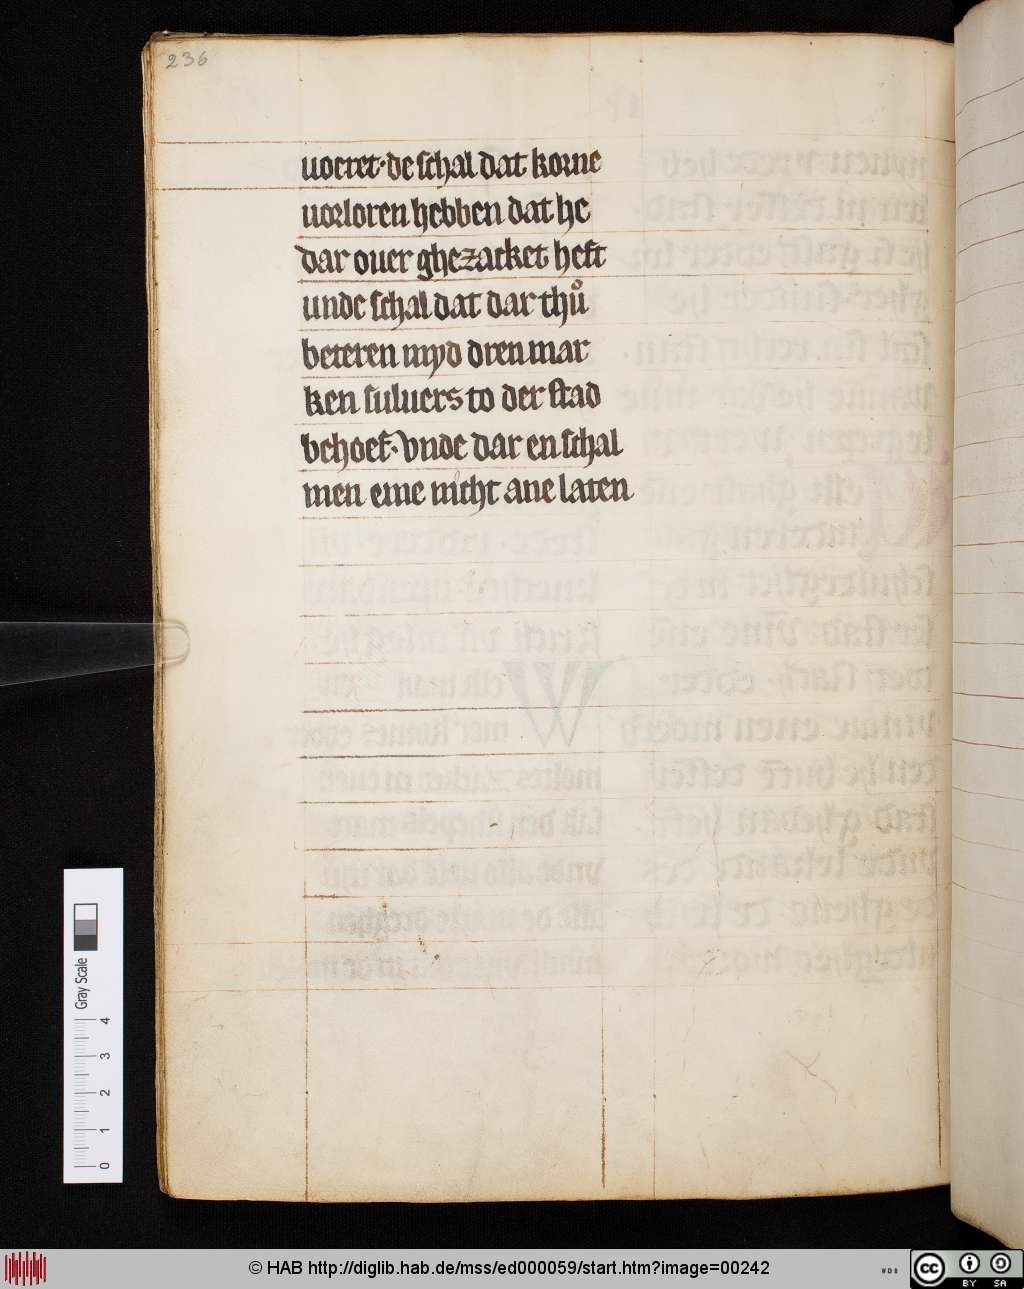 236
uoeret·de ſchal dat korne
uorloren hebben dat he
dar ouer ghezacket heft
unde ſchal dat dar thuͦ
beteren myd dren mar
ken ſuluers to der ſtad
behoef·Vnde dar en ſchal
men eme nicht ane laten
Gray Scale
4
3
2
1
0
© HAB http://diglib.hab.de/mss/ed000059/start.htm?image=00242
WDB
cc BY SA